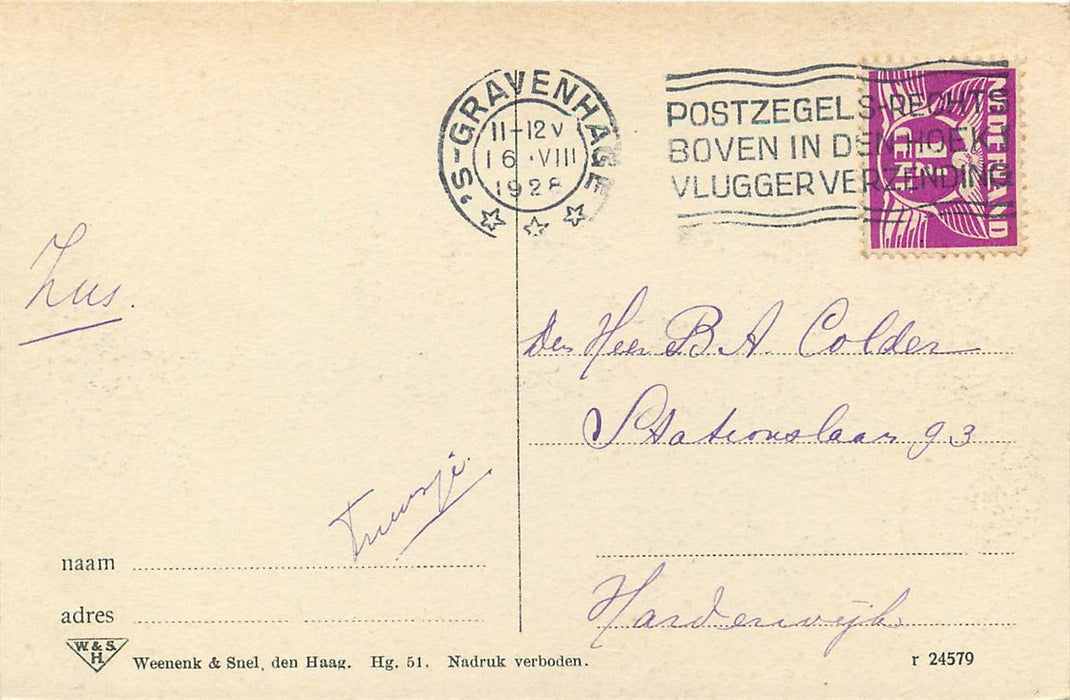 'S-GRAVENHAGE
11-12 V
16 · VIII
1928
POSTZEGELS-RECHTS
BOVEN IN DEN HOEK!
VLUGGER VERZENDING
NEDERLAND
1½
CENT
Zus.
Den Heer B. A. Colder
Stationslaan 93
Truusje.
Harderwijk
naam
adres
W. & S.
H.
Weenenk & Snel, den Haag. Hg. 51. Nadruk verboden.
r 24579